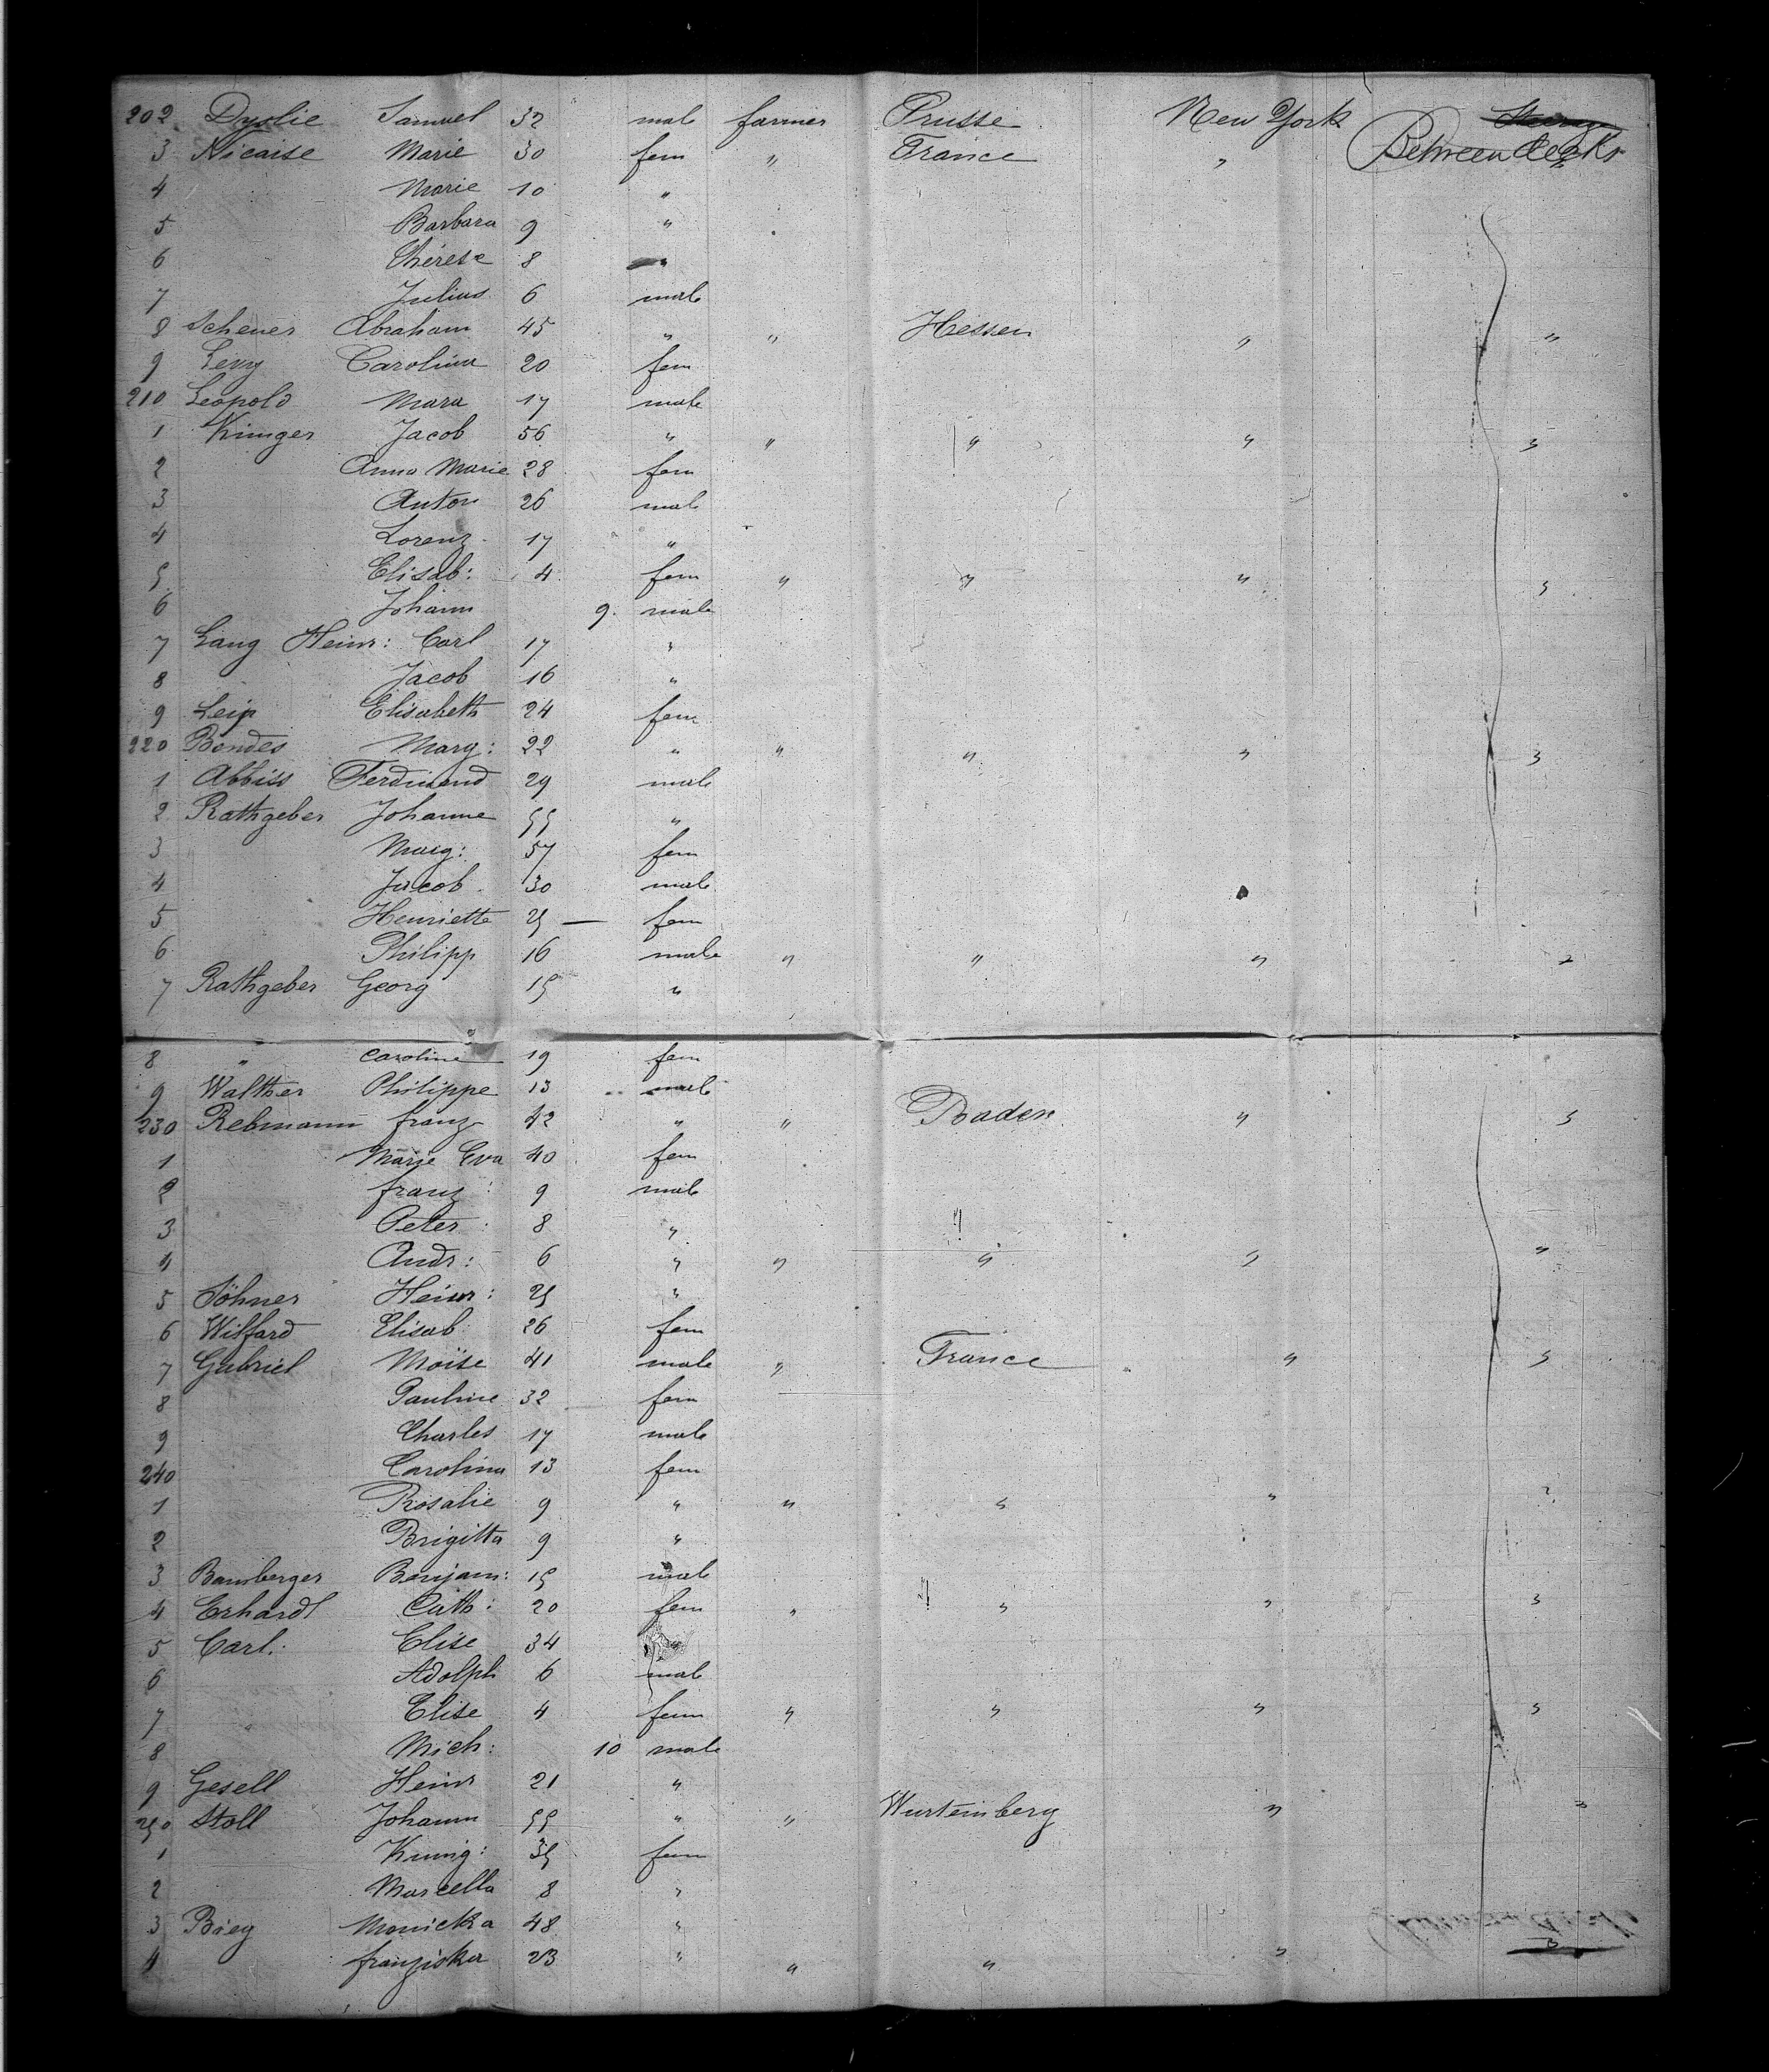 202 Dyolie Samuel 32 male farmer Prusse New York Steerage
3 Nicaise Marie 30 fem " France " Between decks
4 Marie 10 "
5 Barbara 9 "
6 Thérese 8 "
7 Julius 6 male
8 Scheuer Abraham 45 " " Hessen " "
9 Levy Carolina 20 fem
210 Leopold Mara 17 male
1 Kimger Jacob 56 " " " " "
2 Anna Marie 28 fem
3 Anton 26 male
4 Lorenz 17 "
5 Elisab: 4 fem " " " "
6 Johann 9. male
7 Lang Heinr: Carl 17 "
8 Jacob 16 "
9 Leip Elisabeth 24 fem
220 Bendes Marg: 22 " " " " "
1 Abbiss Ferdinand 29 male
2 Rathgeber Johanne 55 "
3 Marg: 57 fem
4 Jacob 30 male
5 Henriette 25 — fem
6 Philipp 16 male " " " "
7 Rathgeber Georg 15 "
8 " Caroline 19 fem
9 Walther Philippe 13 male
230 Rebmann franz 42 " " Baden " "
1 Marie Eva 40 fem
2 franz 9 male
3 Peter 8 " "
4 Andr: 6 " " " " "
5 Söhner Heinr: 25 "
6 Wilfard Elisab 26 fem
7 Gabriel Moïse 41 male " France " "
8 Pauline 32 fem
9 Charles 17 male
240 Carolina 13 fem
1 Rosalie 9 " " " " "
2 Brigitta 9 "
3 Bamberger Benjam: 15 male
4 Erhardt Cath: 20 fem " " " "
5 Carl. Elise 34 "
6 Adolph 6 male
7 Elise 4 fem " " " "
8 Mich: 10 male
9 Gesell Heinr 21 "
250 Stoll Johann 55 " " Wurtemberg " "
1 Kunig: 35 fem
2 Marcella 8 "
3 Bieg Monicka 48 "
4 franziska 23 " " " " "